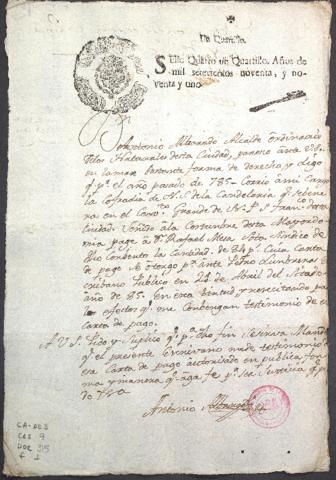 Un Quartillo.
Sello Quarto un Quartillo. Años de
mil setecientos noventa, y no-
venta y uno.
Antonio Alcalde Ordinario
delos Naturales desta Ciudad, paresco ante
en la mas bastante forma de derecho, y digo
q.e el año pasado de 785 Corrio á mi Cargo
la Cofradia de N.S. de la Candelaria q.e se bene
ra en el Conv.to Grande de N.P.S. Fran.co desta
Ciudad. á la Costumbre desta Mayordo
mia page a D.n Rafael Mesa Sindico de
dho Conbento la Cantidad de 84 p.s Cuia Carta
de pago ante Pedro Lumbreras
cribano Publico en 24 de Abril del Sitado
año de 85. en esta birtud, y nesecitando pa
los efectos q.e me Combengan testimonio de
Carta de pago.
A V.S. Pido y Suplico q.e p.r tho fin se sirva Mandar
q.e el presente Escrivano me de testimonio
esa Carta de pago autorisado en publica for
ma y manera q.e aga fe p.r ser Justicia q.e p
do
Antonio
CA-
CAJ 9
DOC 315
f 1